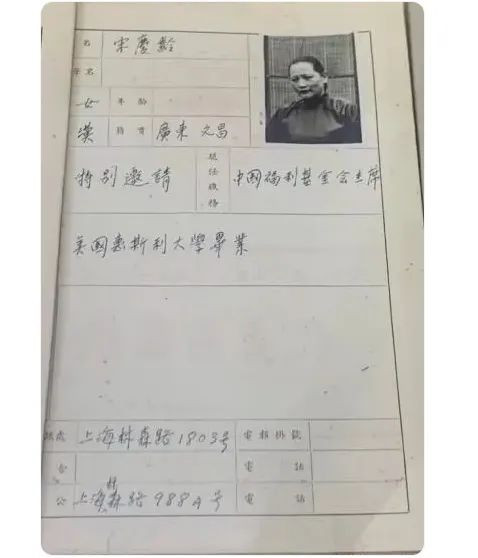 名 宋慶齡
年 齡
女
漢 籍貫 廣東 文昌
特别邀請 現任職務 中國福利基金会主席
美國惠斯利大學畢業
上海林森路1803号 電報掛號
電 話
公 上海林森路988A号 電 話